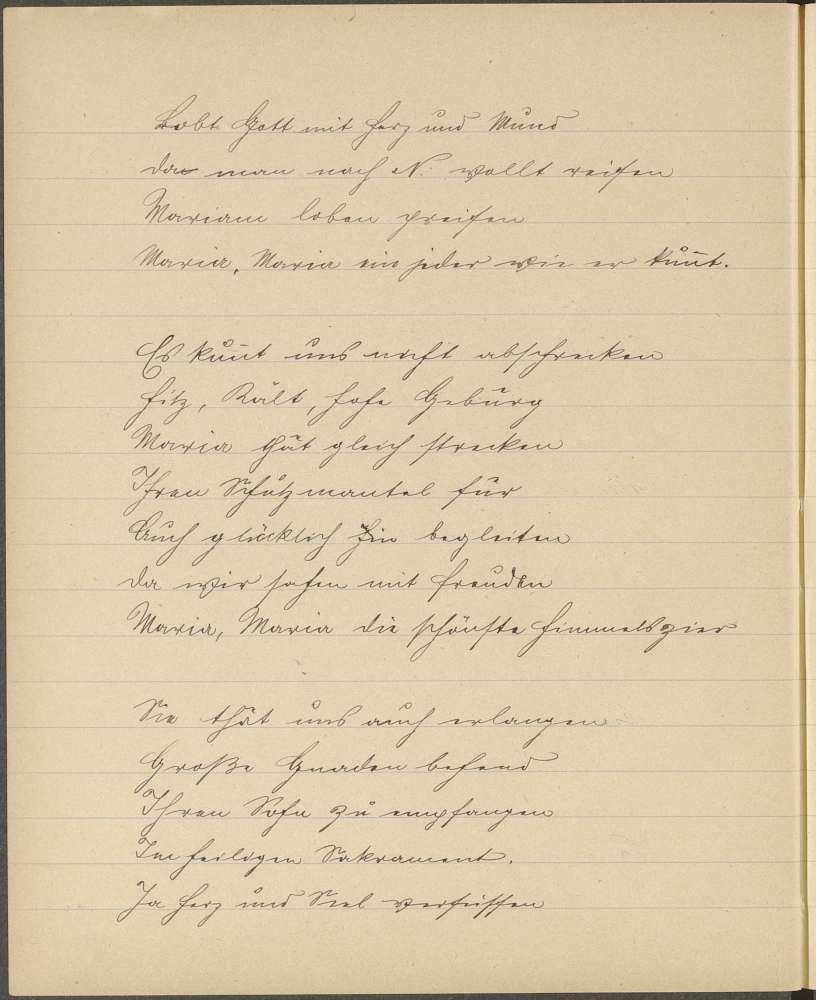 Lobt Gott mit Herz und Mund
Da man nach N. wollt reisen
Mariam loben preisen
Maria, Maria ein jeder wie er kunt.
Es kunt uns nicht abschrecken
Hitz, Kält, hohe Gebürg
Maria thät gleich strecken
Ihren Schutzmantel für
Auch glücklich hin begleiten
Da wir sahen mit Freuden
Maria, Maria die schönste Himmelszier
Sie thät uns auch erlangen
Große Gnaden behend
Ihren Sohn zu empfangen
Im heiligen Sakrament.
Ja Herz und Seel versüssen